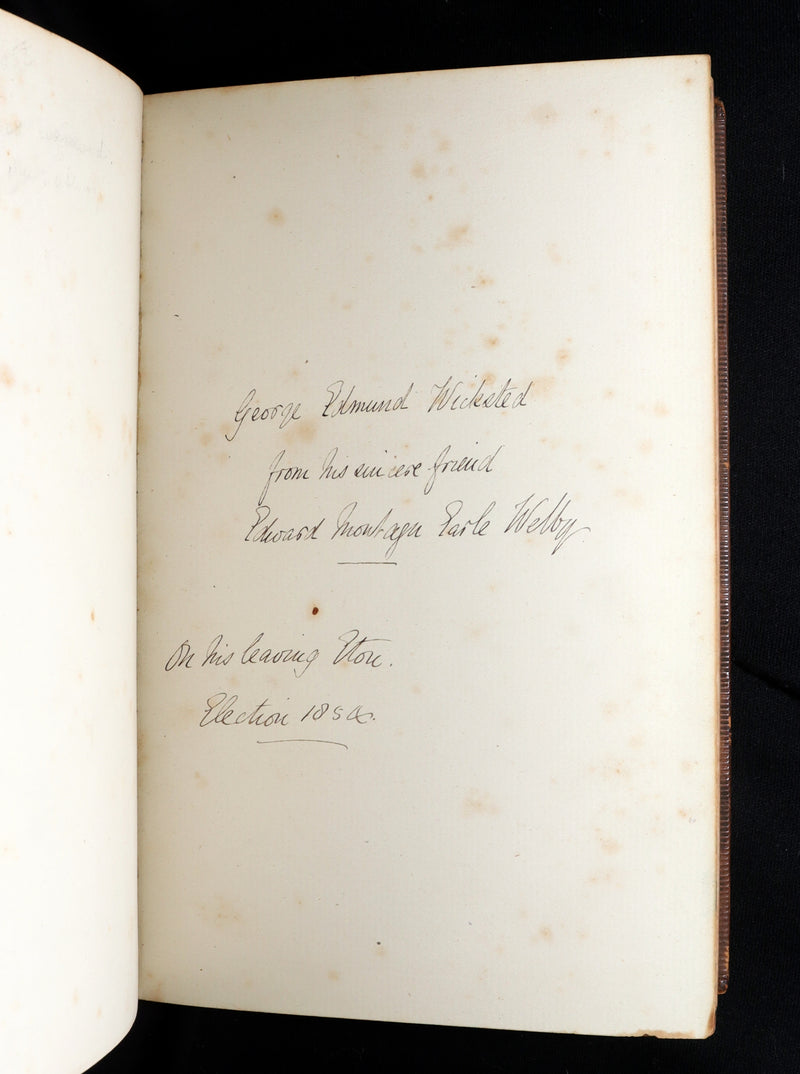 George Edmund Wicksted
from his sincere friend
Edward Montagu Earle Welby
On his leaving Eton.
Election 1854.